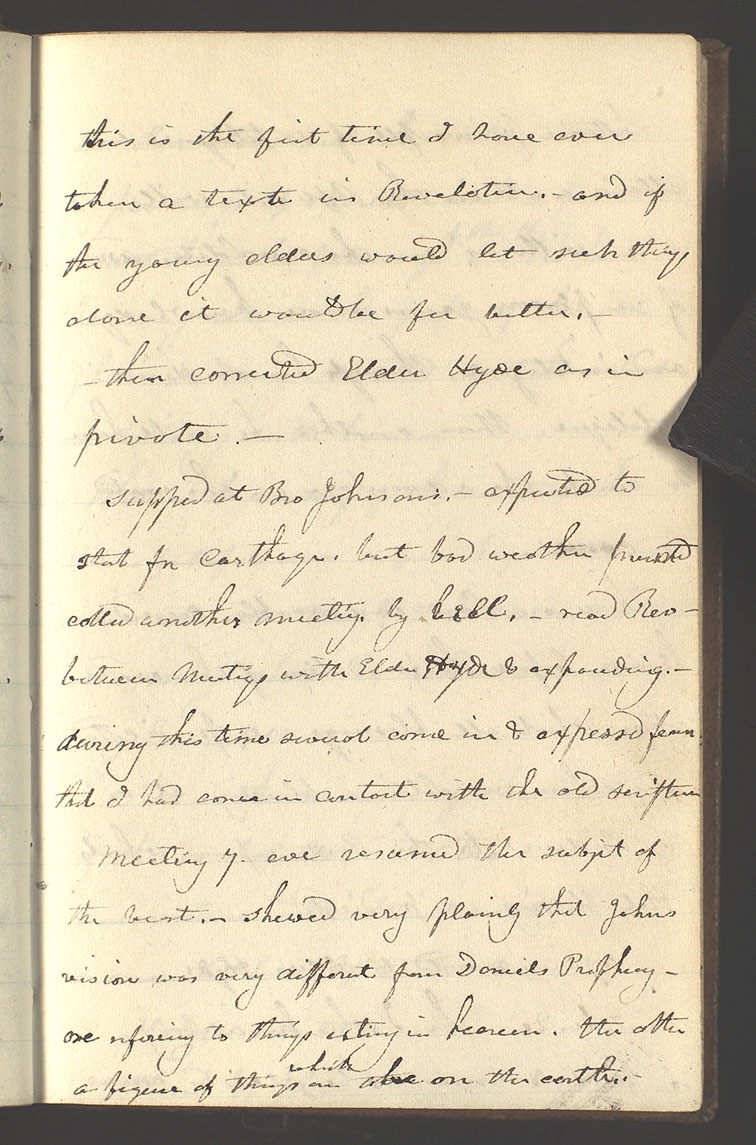 this is the first time I have ever
taken a texte in Revelation.- and if
the young elders would let such things
alone it would be far better.-
- then corrected Elder Hyde as in
private.-
supped at Bro Johnsons.- expected to
start for Carthage. but bad weather prevented
called another meeting. by bell.- read Rev-
between Meetings with Elder Hyde & expounding.-
during this time several come in & expressed fears
that I had come in contact with the old scripture
Meeting 7. eve resumed the subject of
the beast.- shewed very plainly that Johns
vision was very different from Daniels Prophecy-
one refering to things existing in heaven. the other
a figure of things which are on the earth.-